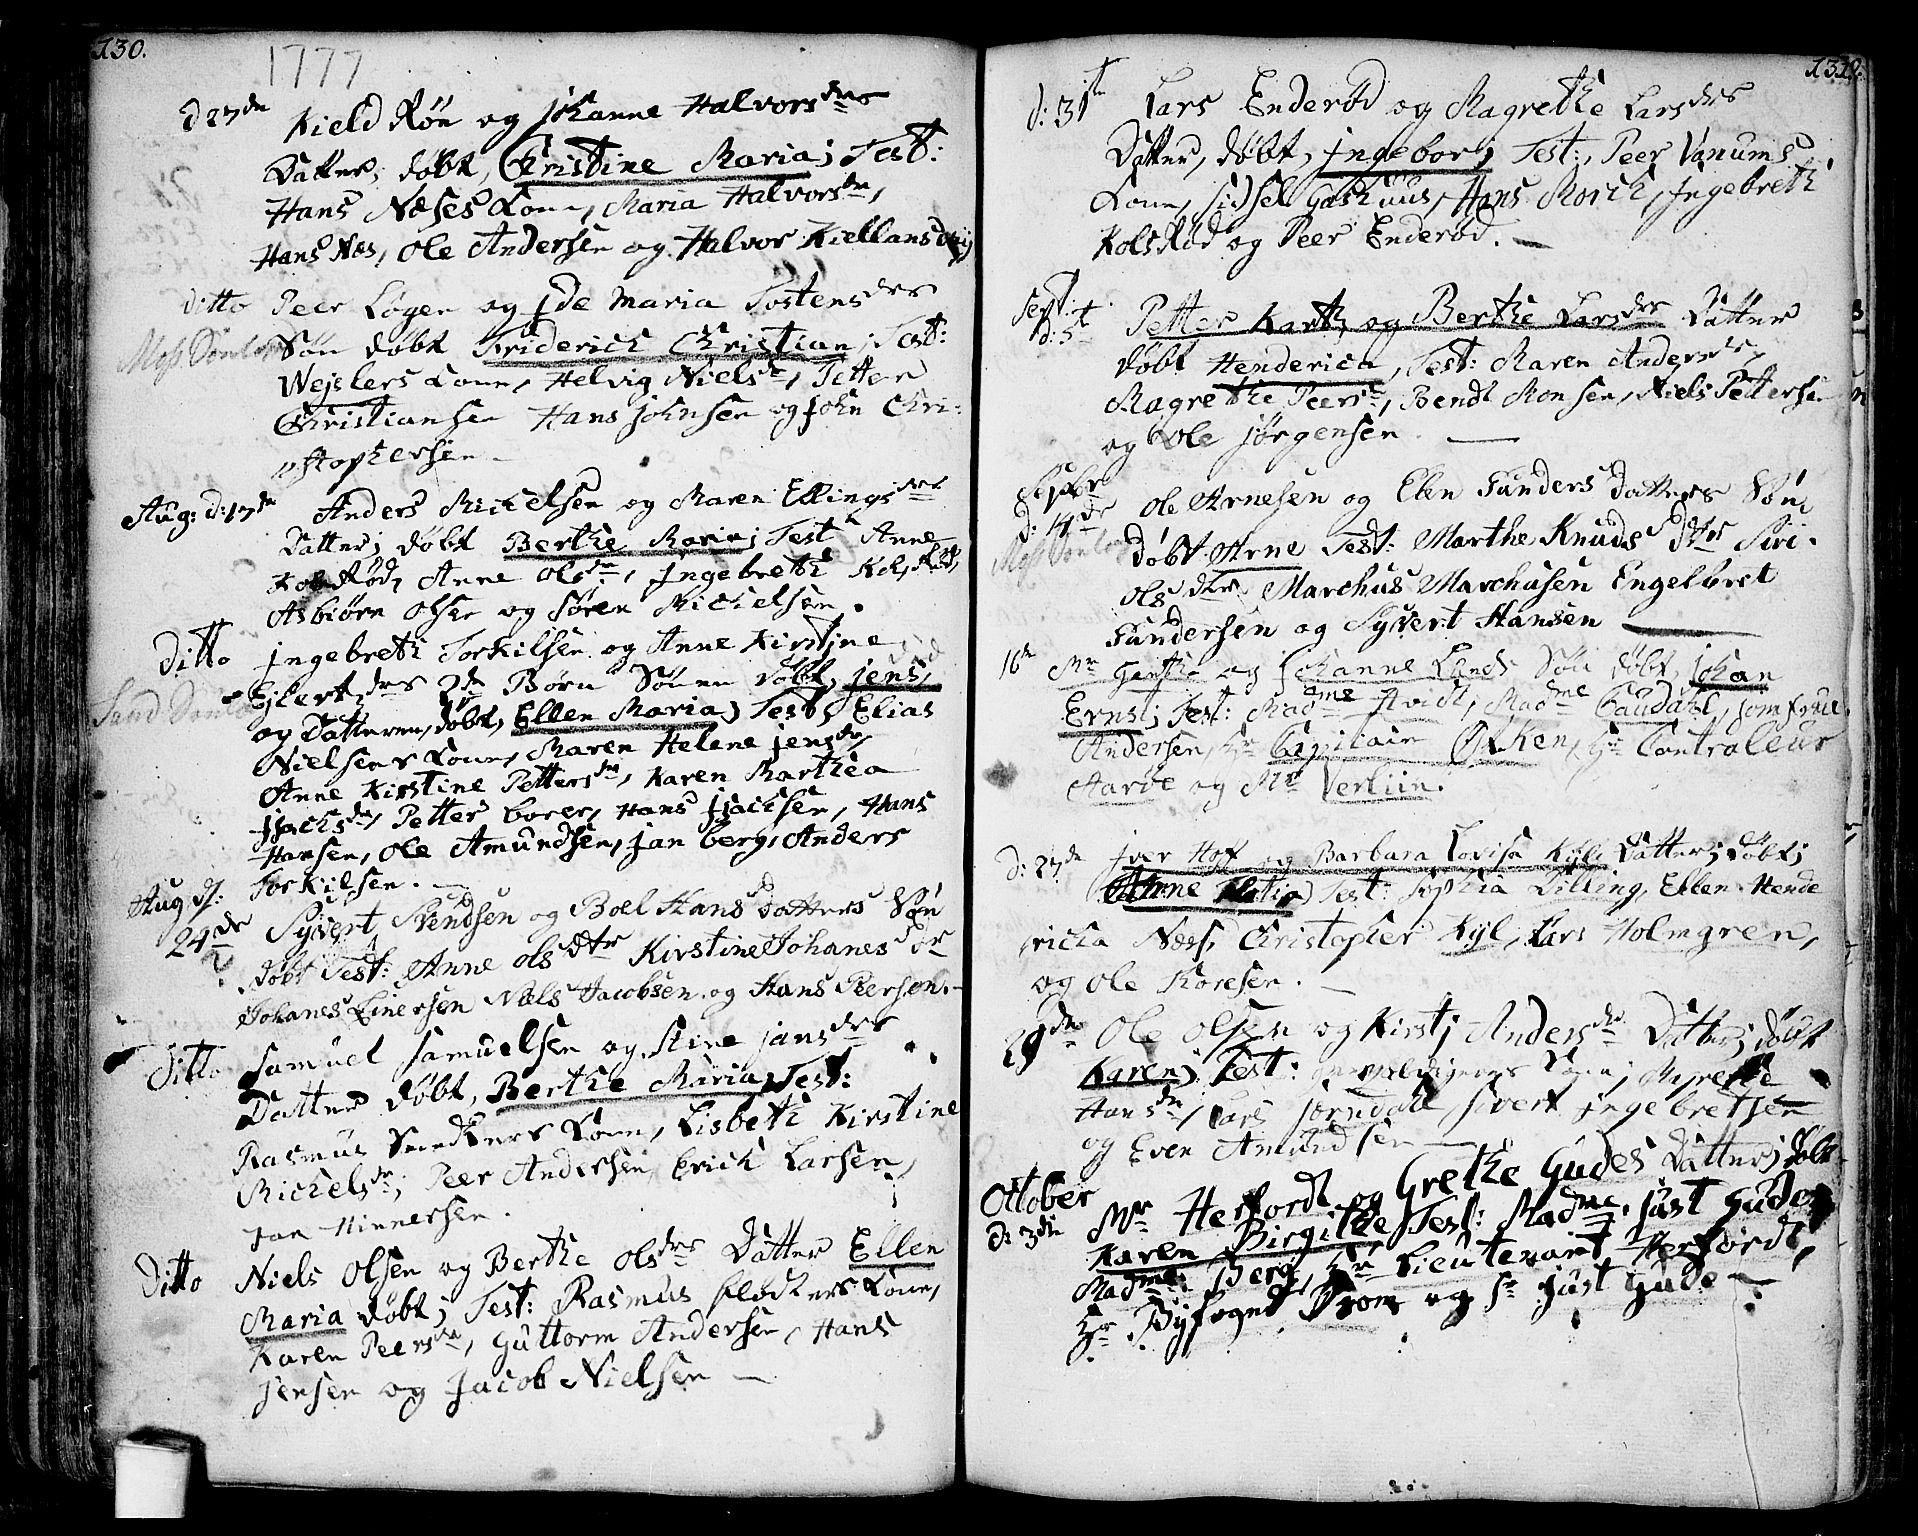 130.
1777
d 27de Kield Røn og Johanne Halvorsdrs
Datter, døbt, Christine Maria; Test:
Hans Næses Kone, Maria Halvorsdr,
Hans Næs, Ole Andersen og Halvor Kiellands
ditto Peer Løgen og Ide Maria Tostensdrs
Søn døbt Friderich Christian, Test:
Wejslers Kone, Helvig Nielsdr, Petter
Christiansen Hans Johnsen og John Chri:
stophersen.
Aug: d: 17de Anders Michelsen og Maren Ellingsdrs
Datter; døbt Berthe Maria; Test Anne
Kolsrød, Anne Olsdr, Ingebreth
Asbiørn Olsen og Søren Michelsen.
Ditto Ingebreth Torkilsen og Anne Kirstine
Ejlertsdrs 2de Børn Sønnen døbt, Jens,
og Datteren, døbt, Ellen Maria; Test, Elias
Nielsens Kone, Maren Helene Jensdr,
Anne Kirstine Pettersdr, Karen Marthea
Isachsdr, Petter borer, Hans Isachsen, Hans
Hansen, Ole Amundsen, Jan berg, Anders
Torkilsen.
Aug d: 24de Syvert Svendsen og Boel Hans Datters Søn
døbt Test: Anne Olsdtr Kirstine Johanesdr
Johanes Einersen Niels Jacobsen og Hans Peersen.
Ditto Samuel Samuelsen og Stine Jansdrs
Datter døbt, Berthe Maria; Test:
Rasmus Snedkers Kone, Lisbeth Kirstine
Michelsdr; Peer Andersen, Erich Larsen,
Jan Hinnersen.
Ditto Niels Olsen og Berthe Olsdrs Datter Ellen
Maria døbt; Test: Rasmus Fløckers Kone,
Karen Peersdr, Guttorm Andersen, Hans
Jensen og Jacob Nielsen
131
d: 31te Lars Enderød og Magrethe Larsdrs
Datter, døbt, Ingebor; Test:, Peer Vanums
Kone, Sidsel Gashuus, Hans Morch, Ingebreth
Kolsrød og Peer Enderød.
Sept: d: 5te Petter Karth og Berthe Larsdrs Datter
døbt Henderica, Test: Maren Andersdr,
Magrethe Peersdr, Bendt Monsen, Niels Pettersen
og Ole Jørgensen.
d: 14de Ole Arnesen og Elen Gunders Datters Søn
døbt Arne Test: Marthe Knudsdtr Siri
Olsdtr Marchus Marchusen Engelbret
Gundersen og Syvert Hansen
16de Mr Genthe og Johanne Lunds Søn døbt, Johan
Ernst; Test: Madme Hvidt, Madme Caudahl, Jomfrue
Andersen, Hr Capitain Ørken, Hr Controlleur
Aaroe og Mr Verliin.
d: 27de Iver Hoff og Barbara Lovisa Kyls Datter; døbt;
Anne; Test: Sophia Lilling, Ellen Hende
richa Næss, Christopher Kyl, Lars Holmgren,
og Ole Koresen.
29de Ole Olsen og Kirsti Andersdr Datter; døbt
Karen; Test: Kone; Magrethe
Hansdr, Lars Jørndahl, Sivert Ingebretsen
og Even Amundsen
October d: 3die Mr Herfordt og Grethe Gudes Datter; døbt
Karen Birgithe Test: Madme. Just Gude
Madme: Berg, Hr Lieutenant Herfordt,
Hr Byfoget Prom og Sr Just Gude